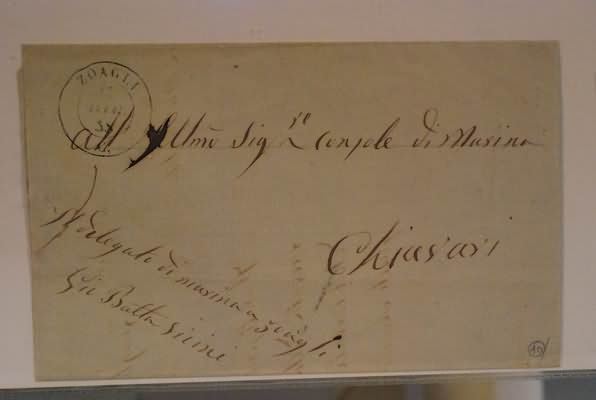 ZOAGLI
58
All' Illmo Sigre Console di Marina
Chiavari
Il delegato di marina a Zoagli
Gio Batta
10